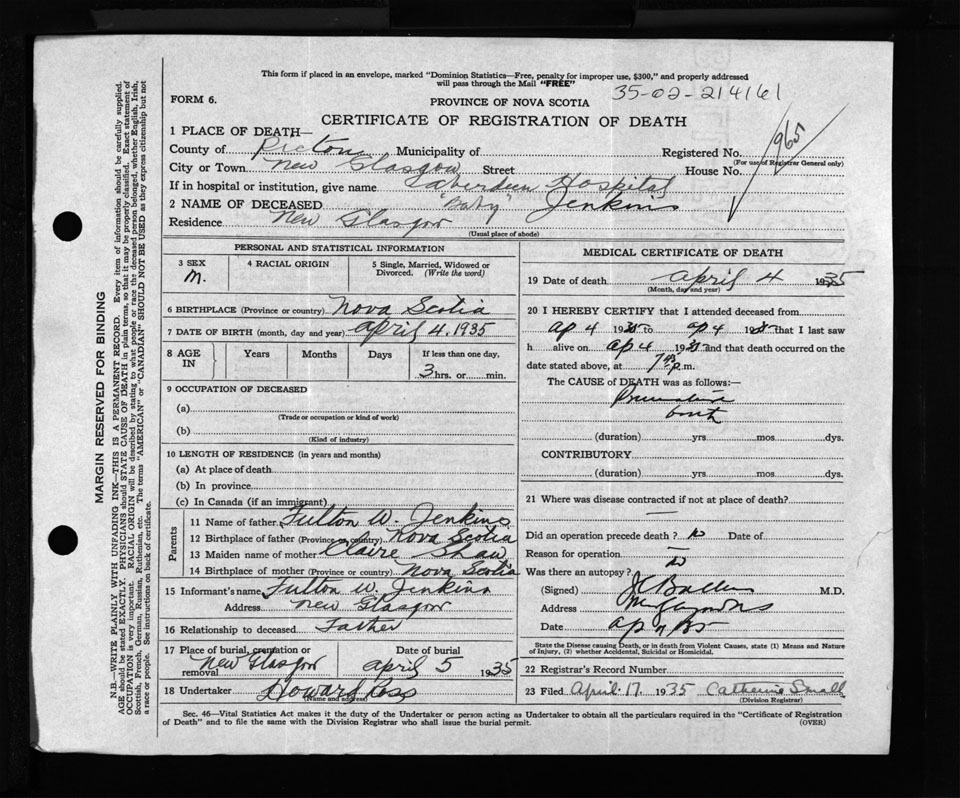 This form if placed in an envelope, marked "Dominion Statistics—Free, penalty for improper use, $300," and properly addressed
will pass through the Mail "FREE"
35-02-214161
FORM 6.
PROVINCE OF NOVA SCOTIA
CERTIFICATE OF REGISTRATION OF DEATH
965
1 PLACE OF DEATH—
County of Pictou Municipality of Registered No.
(For use of Registrar General only)
City or Town New Glasgow Street House No.
If in hospital or institution, give name Aberdeen Hospital
2 NAME OF DECEASED "Baby" Jenkins
Residence New Glasgow
(Usual place of abode)
PERSONAL AND STATISTICAL INFORMATION
3 SEX 4 RACIAL ORIGIN 5 Single, Married, Widowed or
Divorced. (Write the word)
M.
6 BIRTHPLACE (Province or country) Nova Scotia
7 DATE OF BIRTH (month, day and year) April 4, 1935
8 AGE IN Years Months Days If less than one day,
3 hrs. or min.
9 OCCUPATION OF DECEASED
(a)
(Trade or occupation or kind of work)
(b)
(Kind of industry)
10 LENGTH OF RESIDENCE (in years and months)
(a) At place of death
(b) In province
(c) In Canada (if an immigrant)
Parents
11 Name of father Fulton W. Jenkins
12 Birthplace of father (Province or country) Nova Scotia
13 Maiden name of mother Claire Shaw
14 Birthplace of mother (Province or country) Nova Scotia
15 Informant's name Fulton W. Jenkins
Address New Glasgow
16 Relationship to deceased Father
17 Place of burial, cremation or removal Date of burial
New Glasgow April 5 1935
18 Undertaker Howard Ross
(Name and address)
MEDICAL CERTIFICATE OF DEATH
19 Date of death April 4 1935
(Month, day and year)
20 I HEREBY CERTIFY that I attended deceased from
Ap 4 1935 to Ap 4 1935 that I last saw
h alive on Ap 4 1935 and that death occurred on the
date stated above, at 7 45 p.m.
The CAUSE of DEATH was as follows:—
Premature
birth
(duration) yrs mos dys.
CONTRIBUTORY
(duration) yrs mos dys.
21 Where was disease contracted if not at place of death?
—
Did an operation precede death? No Date of
Reason for operation —
Was there an autopsy? No
(Signed) M.D.
Address
Date Ap 4/35
State the Disease causing Death, or in death from Violent Causes, state (1) Means and Nature
of Injury, (2) whether Accidental, Suicidal or Homicidal.
22 Registrar's Record Number
23 Filed April 17 1935 Catherine Small
(Division Registrar)
Sec. 46—Vital Statistics Act makes it the duty of the Undertaker or person acting as Undertaker to obtain all the particulars required in the "Certificate of Registration
of Death" and to file the same with the Division Registrar who shall issue the burial permit. (OVER)
MARGIN RESERVED FOR BINDING
N.B.—WRITE PLAINLY WITH UNFADING INK—THIS IS A PERMANENT RECORD. Every item of information should be carefully supplied.
AGE should be stated EXACTLY. PHYSICIANS should STATE CAUSE OF DEATH in plain terms, so that it may be properly classified. Exact statement of
OCCUPATION is very important. RACIAL ORIGIN will be described by stating to what people or race the deceased person belonged, whether English, Irish,
Scottish, French, German, Russian, Ruthenian, etc. The terms "AMERICAN" or "CANADIAN" SHOULD NOT BE USED as they express citizenship but not
a race or people. See instructions on back of certificate.